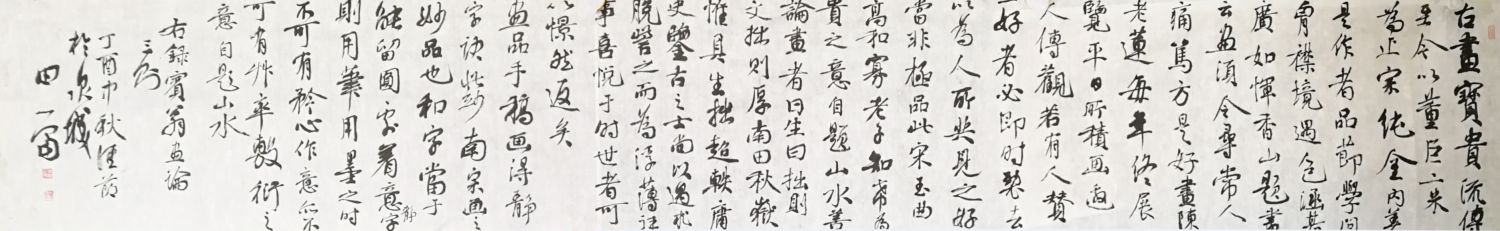 古畫寶貴流傳
至今以董巨二米
為正宗純全內美
是作者品節學問
胷襟境遇包涵甚
廣如惲香山題畫
云畫須令尋常人
痛罵方是好畫陳
老蓮每年終展
覽平日所積画遍
人傳觀若有人贊
好者必即時裂去
以為人所共見之好
當非極品此宋玉曲
高和寡老子知希為
貴之意自題山水善
論畫者曰生曰拙則
文拙則厚南田秋嶽
惟具生拙超軼庸
史鑒古之士尚以過於
脫訾之而為浮薄誑
事喜悅于時世者可
以憬然返矣
畫品手稿画得靜
字訣 妙南宋画之
妙品也和字當于
能留圓字着意靜字
則用筆用墨之時
不可有矜心作意尔不
可有艸率敷衍之
意自題山水
右錄賓翁畫論
三則
丁酉中秋佳節
於泉城
田一